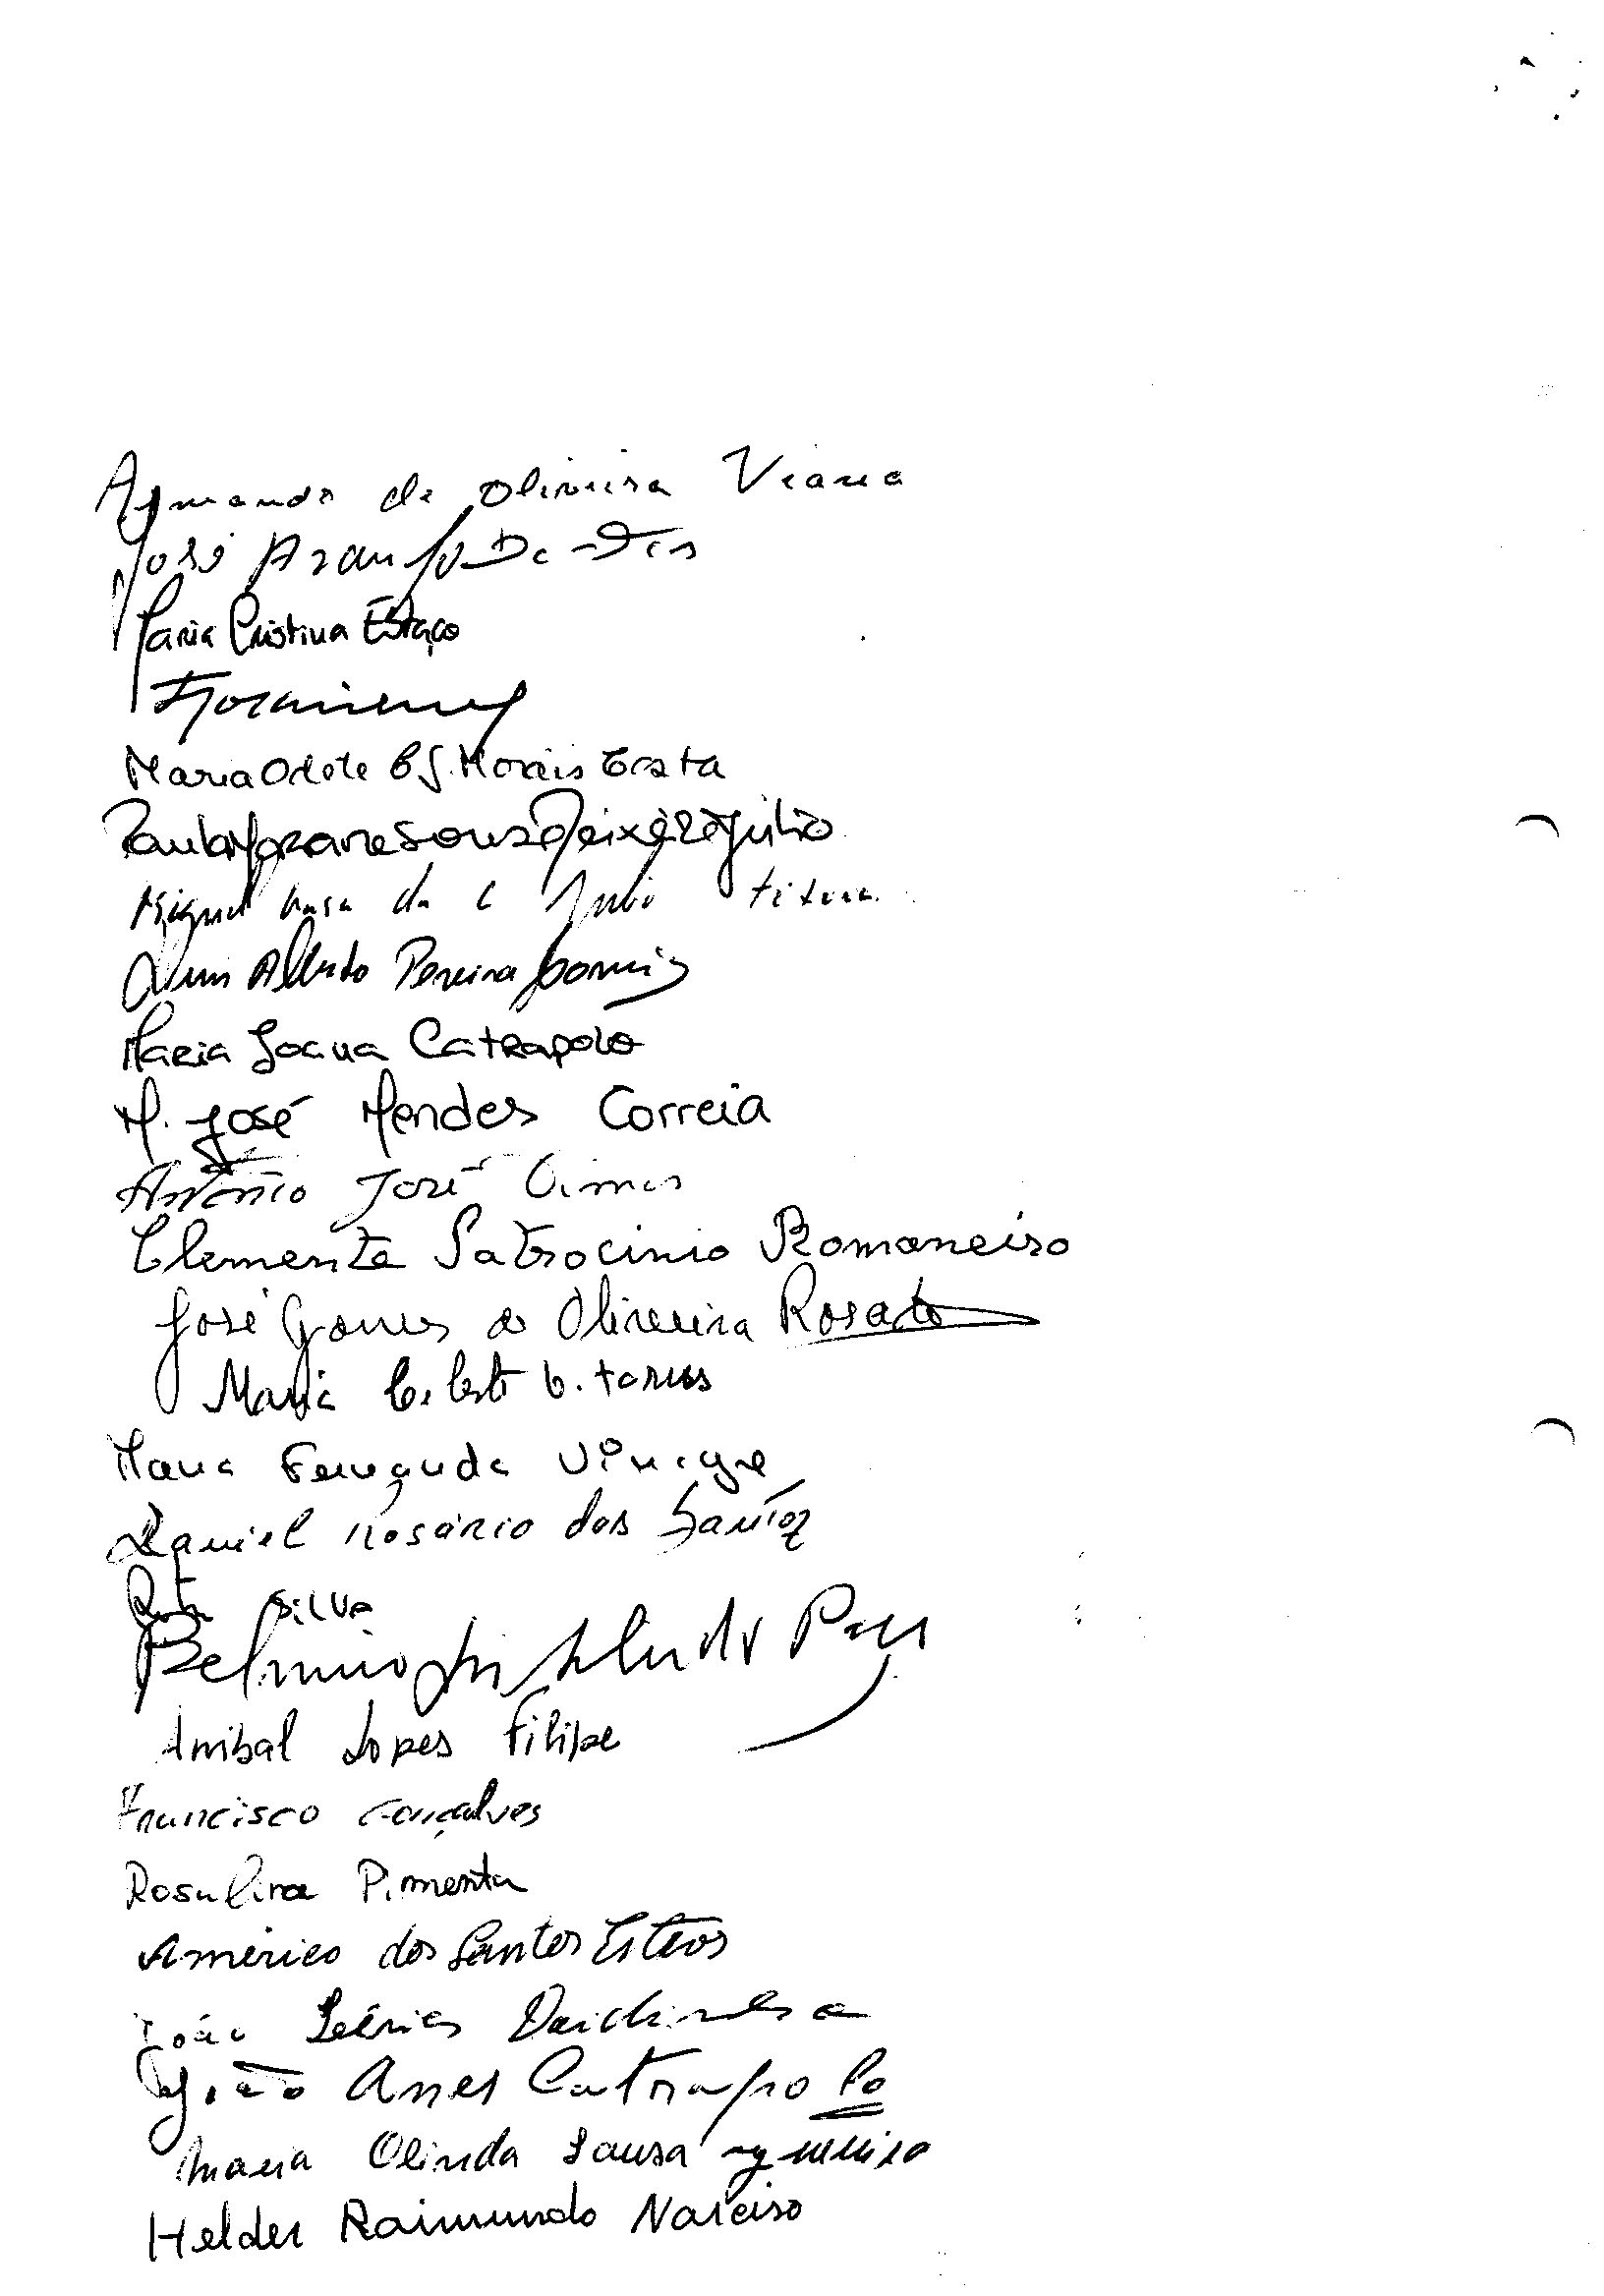 Armando de Oliveira Viana
José Araujo De
Maria Cristina Estaço
Maria Odete C S. Morais Costa
Paula Souza Teixeira Júlio
Miguel da C Julio
Luis Alberto Pereira Gomes
Maria Joana Catrapolo
M. José Mendes Correia
António José
Clemente Patrocinio Romaneiro
José Gomes de Oliveira Rosado
Maria Celeste C. Torres
Maria Fernanda Vinagre
Daniel Rosário dos Santos
Silva
Belmiro
Anibal Lopes Filipe
Francisco Gonçalves
Rosalina Pimenta
Américo dos Santos Esteves
João
João Anes Catrapolo
Maria Olinda Sousa
Helder Raimundo Narciso